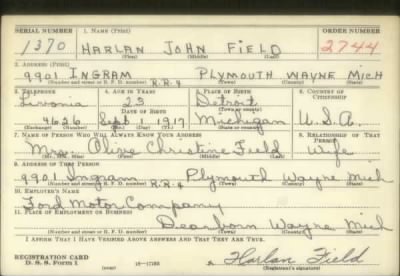 SERIAL NUMBER 1. NAME (Print) ORDER NUMBER
1370 HARLAN JOHN FIELD 2744
(First) (Middle) (Last)
2. ADDRESS (Print)
9901 INGRAM R.R.4 PLYMOUTH WAYNE MICH
(Number and street or R. F. D. number) (Town) (County) (State)
3. TELEPHONE 4. AGE IN YEARS 5. PLACE OF BIRTH 6. COUNTRY OF CITIZENSHIP
Livonia 23 Detroit
DATE OF BIRTH (Town or county)
4626 Sept 1 1917 Michigan U.S.A.
(Exchange) (Number) (Mo.) (Day) (Yr.) (State or country)
7. NAME OF PERSON WHO WILL ALWAYS KNOW YOUR ADDRESS 8. RELATIONSHIP OF THAT PERSON
Mrs. Olive Christine Field Wife
(Mr., Mrs., Miss) (First) (Middle) (Last)
9. ADDRESS OF THAT PERSON
9901 Ingram R.R.4 Plymouth Wayne Mich
(Number and street or R. F. D. number) (Town) (County) (State)
10. EMPLOYER'S NAME
Ford Motor Company
11. PLACE OF EMPLOYMENT OR BUSINESS
Dearborn Wayne Mich
(Number and street or R. F. D. number) (Town) (County) (State)
I AFFIRM THAT I HAVE VERIFIED ABOVE ANSWERS AND THAT THEY ARE TRUE.
REGISTRATION CARD
D. S. S. Form 1 (over) Harlan Field
(Registrant's signature)